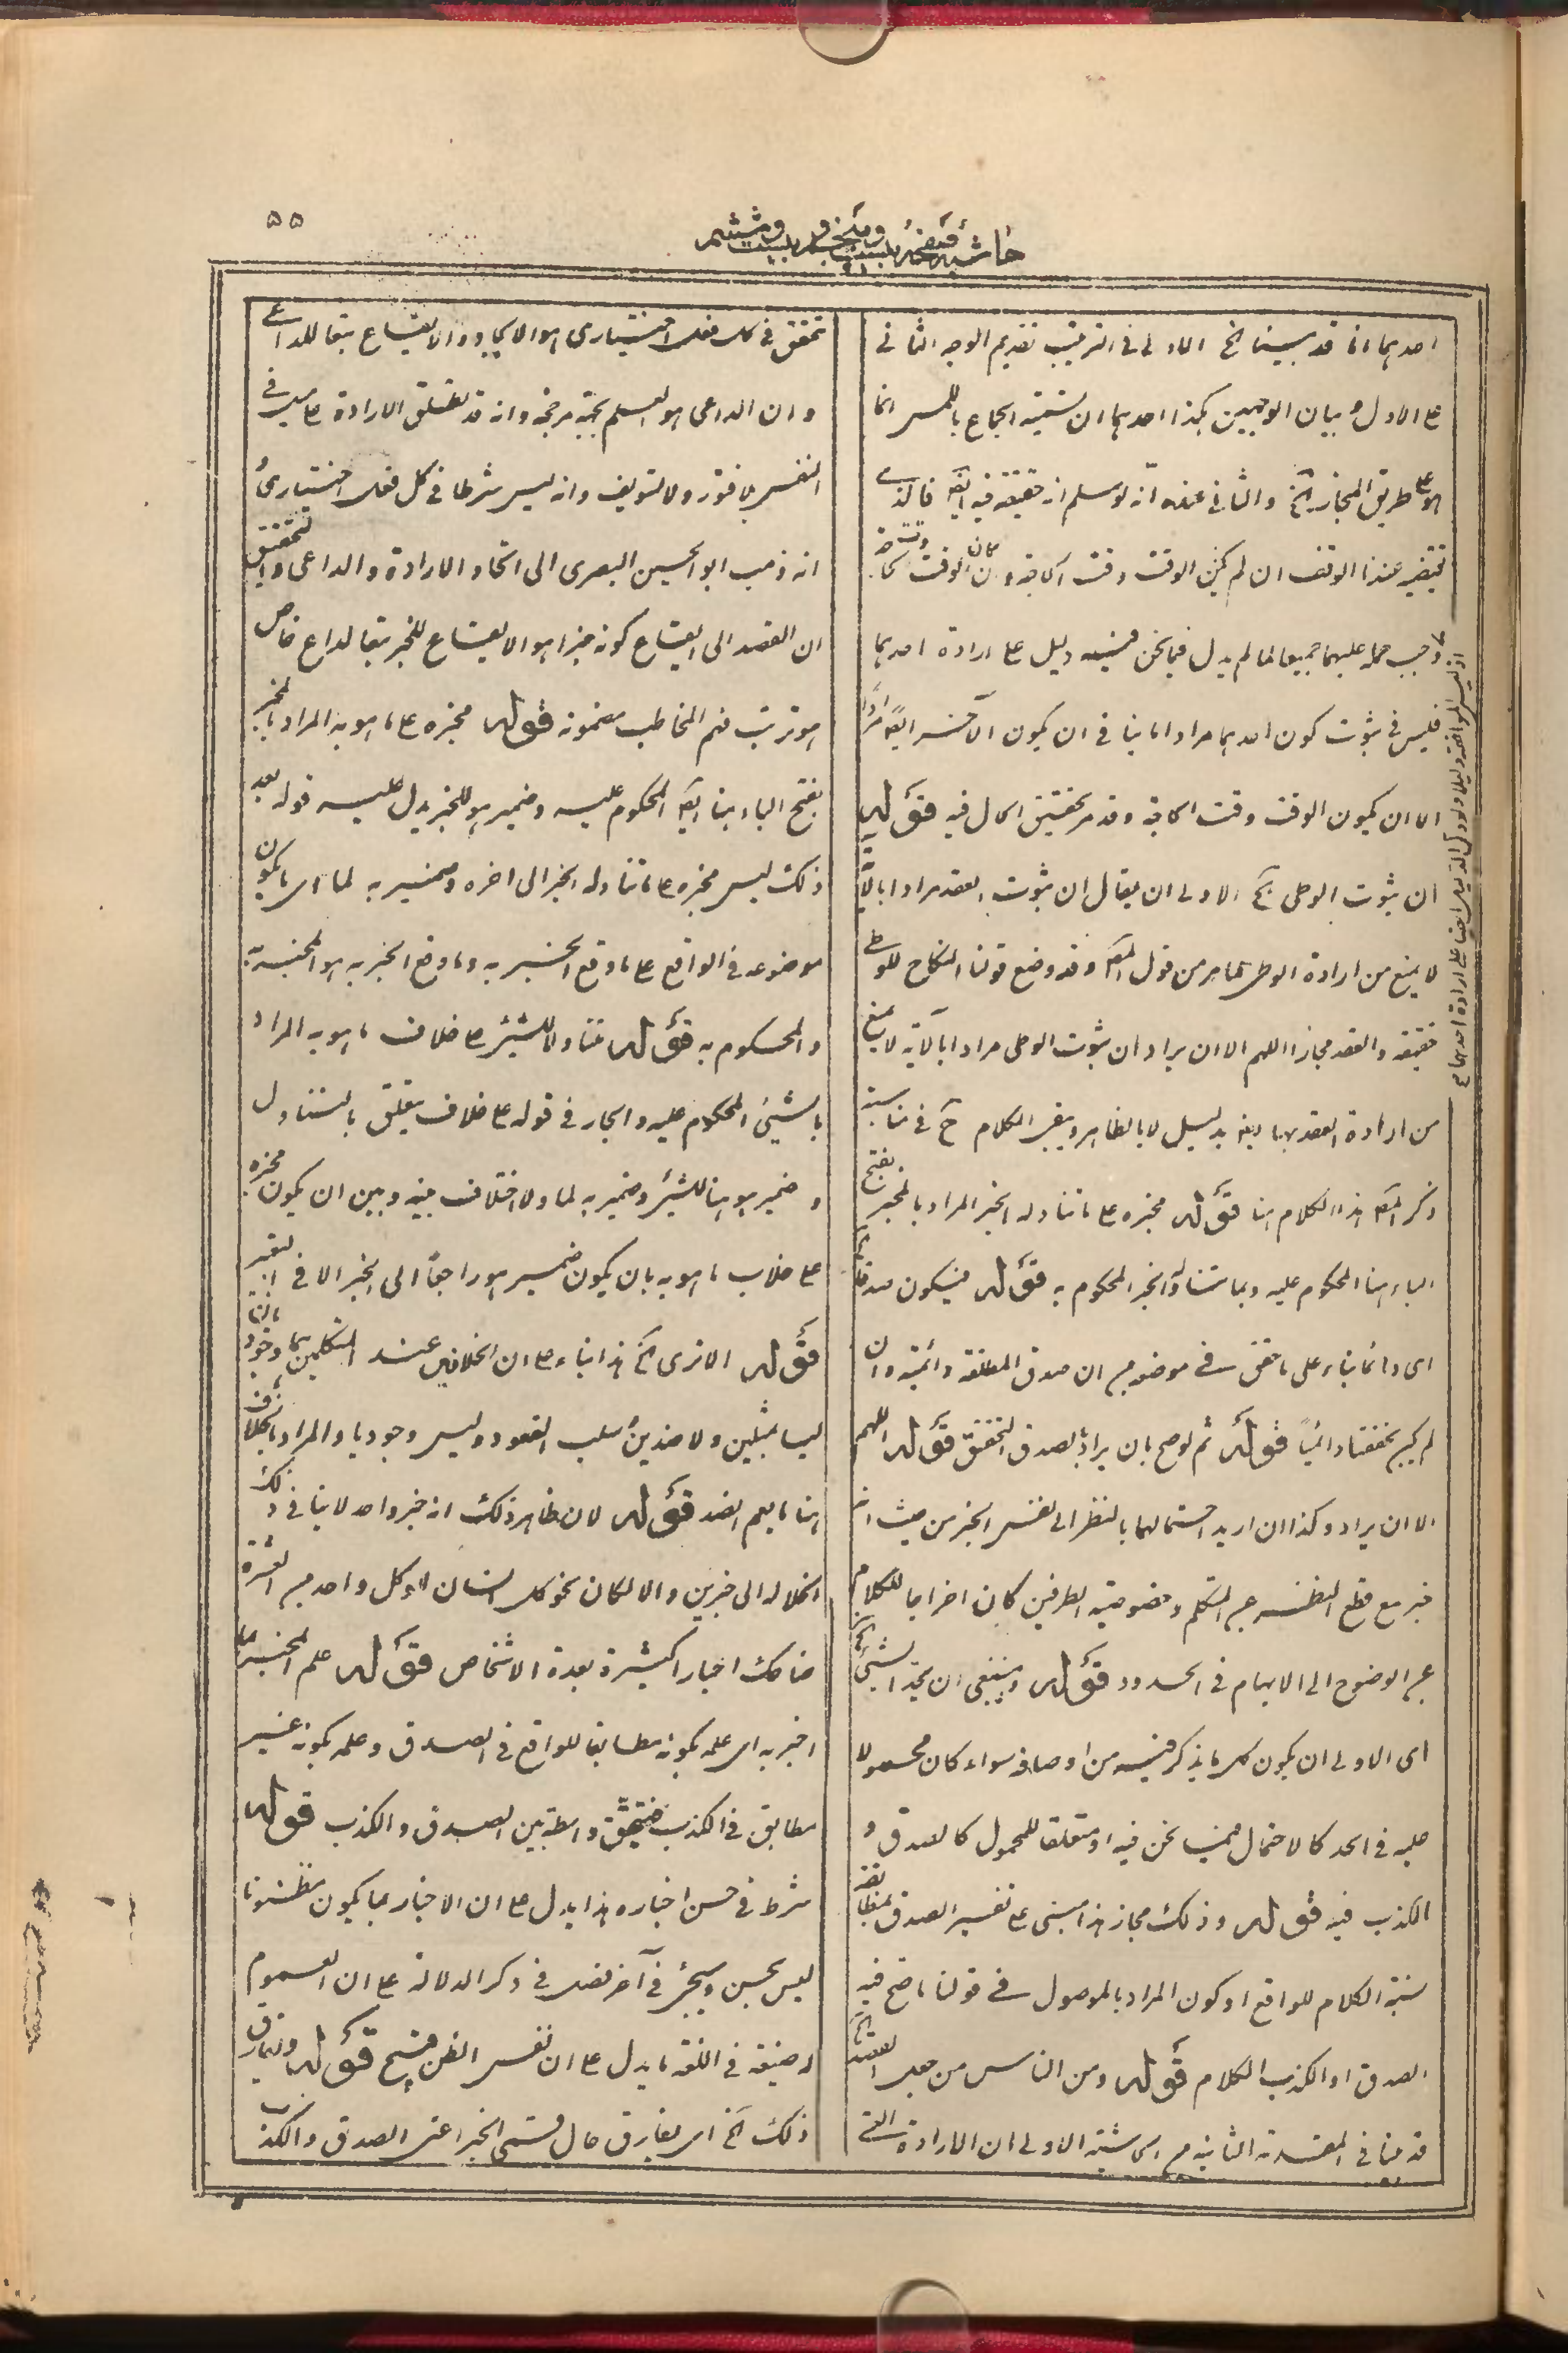 ۵۵
حاشیة صفحه بیست و پنجم و بیست و ششم
احدهما انا قد بینا الخ الاولى فى الترتیب تقدیم الوجه الثانى
على الاول و بیان الوجهین هکذا احدهما ان تسمیة الجماع باللمس انما
هو على طریق المجاز الخ والثانى عنده انه لو سلم انه حقیقة فیه ایضا فالذى
یقتضیه عندنا الوقف ان لم یکن الوقت وقت الحاجة و ان کان الوقت وقت حا
جة وجب حمله علیهما جمیعا لما لم یدل فیما نحن فیه دلیل على ارادة احدهما
فلیس فى ثبوت کون احدهما مرادا ما ینافى ان یکون الآخر ایضا مرادا
الا ان یکون الوقت وقت الحاجة و قد مر تحقیق الحال فیه قوله
ان ثبوت الوطى الخ الاولى ان یقال ان ثبوت العقد مرادا بالآیة
لا یمنع من ارادة الوطى کما مر من قول المصنف و قد وضع قولنا النکاح للوطى
حقیقة والعقد مجازا اللهم الا ان یراد ان ثبوت الوطى مرادا بالآیة لا یمنع
من ارادة العقد بها ایضا بدلیل لا بالظاهر و یبقى الکلام ح فى مناسبة
ذکر المصنف هذا الکلام هنا قوله مخبره على ما تناوله الخبر المراد بالمخبر بفتح
الباء هنا المحکوم علیه و بما تناوله الخبر المحکوم به قوله فیکون صدقا
اى دائما بناء على ما حقق فى موضعه من ان صدق المطلقة دائمیة و ان
لم یکن تحققها دائمیاً قوله ثم لو صح بان یراد بالصدق التحقق قوله اللهم
الا ان یراد و کذا ان ارید احتمالهما بالنظر الى نفس الخبر من حیث انه
خبر مع قطع النظر عن المتکلم و خصوصیة الطرفین کان اخراجا للکلام
عن الوضوح الى الابهام فى الحدود قوله و ینبغى ان یحد الشىء الخ
اى الاولى ان یکون کل ما یذکر فیه من اوصافه سواء کان محمولا
علیه فى الحد کالاحتمال فیما نحن فیه او متعلقا للمحمول کالصدق و
الکذب فیه قوله و ذلک مجاز هذا مبنى على تفسیر الصدق بمطابقة
نسبة الکلام للواقع او کون المراد بالموصول فى قولنا ما صح فیه
الصدق او الکذب الکلام قوله و من الناس من جعل القصد الخ
قد منا فى المقدمة الثانیة من الحاشیة الاولى ان الارادة التى
اذ لیس الموافقة دلیلا و لو دل الدلیل ایضا على ارادة احدهما ع
تتحقق فى کل فعل اختیارى هو الایجاد والایقاع تبعا للداعى
و ان الداعى هو العلم بجهة مرجحة و انه قد تطلق الارادة على میل فى
النفس بلا فتور و لا تسویف و انه لیس شرطا فى کل فعل اختیارى و
انه ذهب ابو الحسین البصرى الى اتحاد الارادة والداعى والتحقیق
ان القصد الى ایقاع کونه خبرا هو الایقاع للخبر تبعا لداع خاص
هو ترتب فهم المخاطب مضمونه قوله مخبره على ما هو به المراد بالمخبر
بفتح الباء هنا ایضا المحکوم علیه و ضمیر هو للخبر یدل علیه قوله بعد
ذلک لیس مخبره على ما تناوله الخبر الى اخره و ضمیر به لما اى ما یکون
موضوعه فى الواقع على ما وقع الخبر به و ما وقع الخبر به هو المخبر به
والمحکوم به قوله متناولا للشىء على خلاف ما هو به المراد
بالشىء المحکوم علیه والجار فى قوله على خلاف یتعلق بالتناول
و ضمیر هو هنا للشىء و ضمیر به لما و لا اختلاف بینه و بین ان یکون مخبره
على خلاف ما هو به بان یکون ضمیر هو راجعاً الى الخبر الا فى التعبیر
قوله الا ترى الخ هذا بناء على ان الخلافین عند المتکلمین هما وجودیان
لیسا بمثلین و لا ضدین و سلب القعود و لیس وجودیا والمراد بالخلاف
هنا ما یعم الضد قوله لان ظاهر ذلک انه خبر واحد لا ینافى ذلک
انحلاله الى خبرین والا لکان نحو کل انسان او کل واحد من العشرة
ضاحک اخبارا کثیرة بعدة الاشخاص قوله علم المخبر بما
اخبر به اى علمه بکونه مطابقا للواقع فى الصدق و علمه بکونه غیر
مطابق فى الکذب فتتحقق واسطة بین الصدق والکذب قوله
شرط فى حسن اخباره هذا یدل على ان الاخبار بما یکون مظنونا
لیس بحسن و یجىء فى آخر فصل فى ذکر الدلالة على ان العموم
له صیغة فى اللغة ما یدل على ان نفس الظن قبیح قوله و یفارق
ذلک الخ اى یفارق حال قسمى الخبر اعنى الصدق والکذب